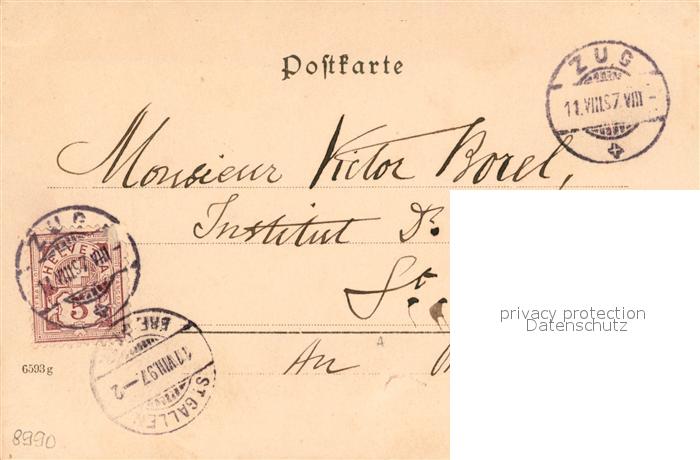 Postkarte
ZUG
11.VIII.97.VIII-
Monsieur Victor Borel,
Institut Dr.
St.
An
ZUG
HELVETIA
5
11.VIII.97-2
ST. GALLEN
6593 g
8990
A
privacy protection
Datenschutz